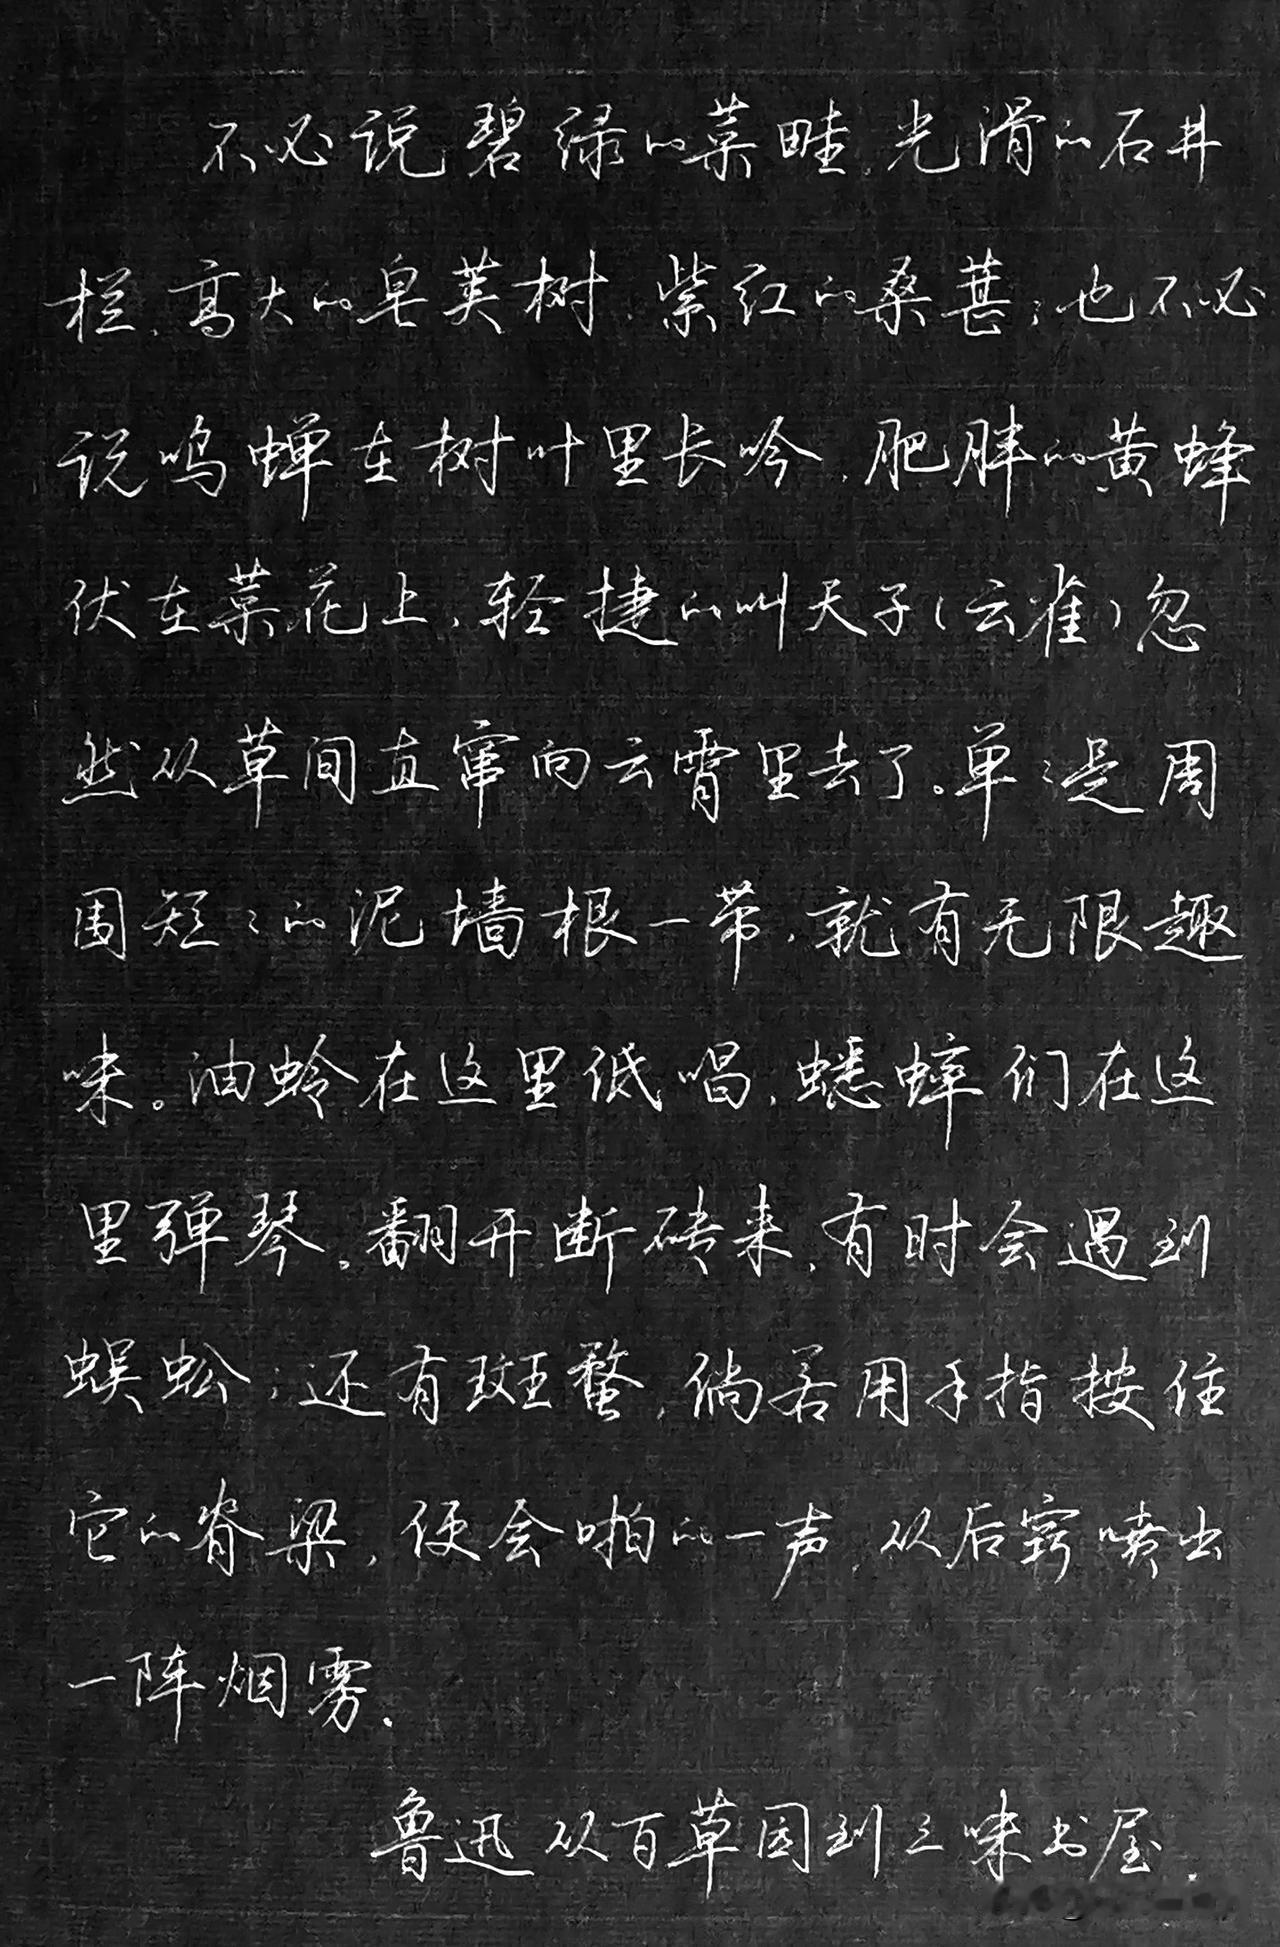 不必说碧绿的菜畦,光滑的石井
栏,高大的皂荚树,紫红的桑葚;也不必
说鸣蝉在树叶里长吟,肥胖的黄蜂
伏在菜花上,轻捷的叫天子(云雀)忽
然从草间直窜向云霄里去了。单㆓是周
围短㆓的泥墙根一带,就有无限趣
味。油蛉在这里低唱,蟋蟀们在这
里弹琴。翻开断砖来,有时会遇到
蜈蚣;还有斑蝥,倘若用手指按住
它的脊梁,便会啪的一声,从后窍喷出
一阵烟雾.
鲁迅从百草园到三味书屋.